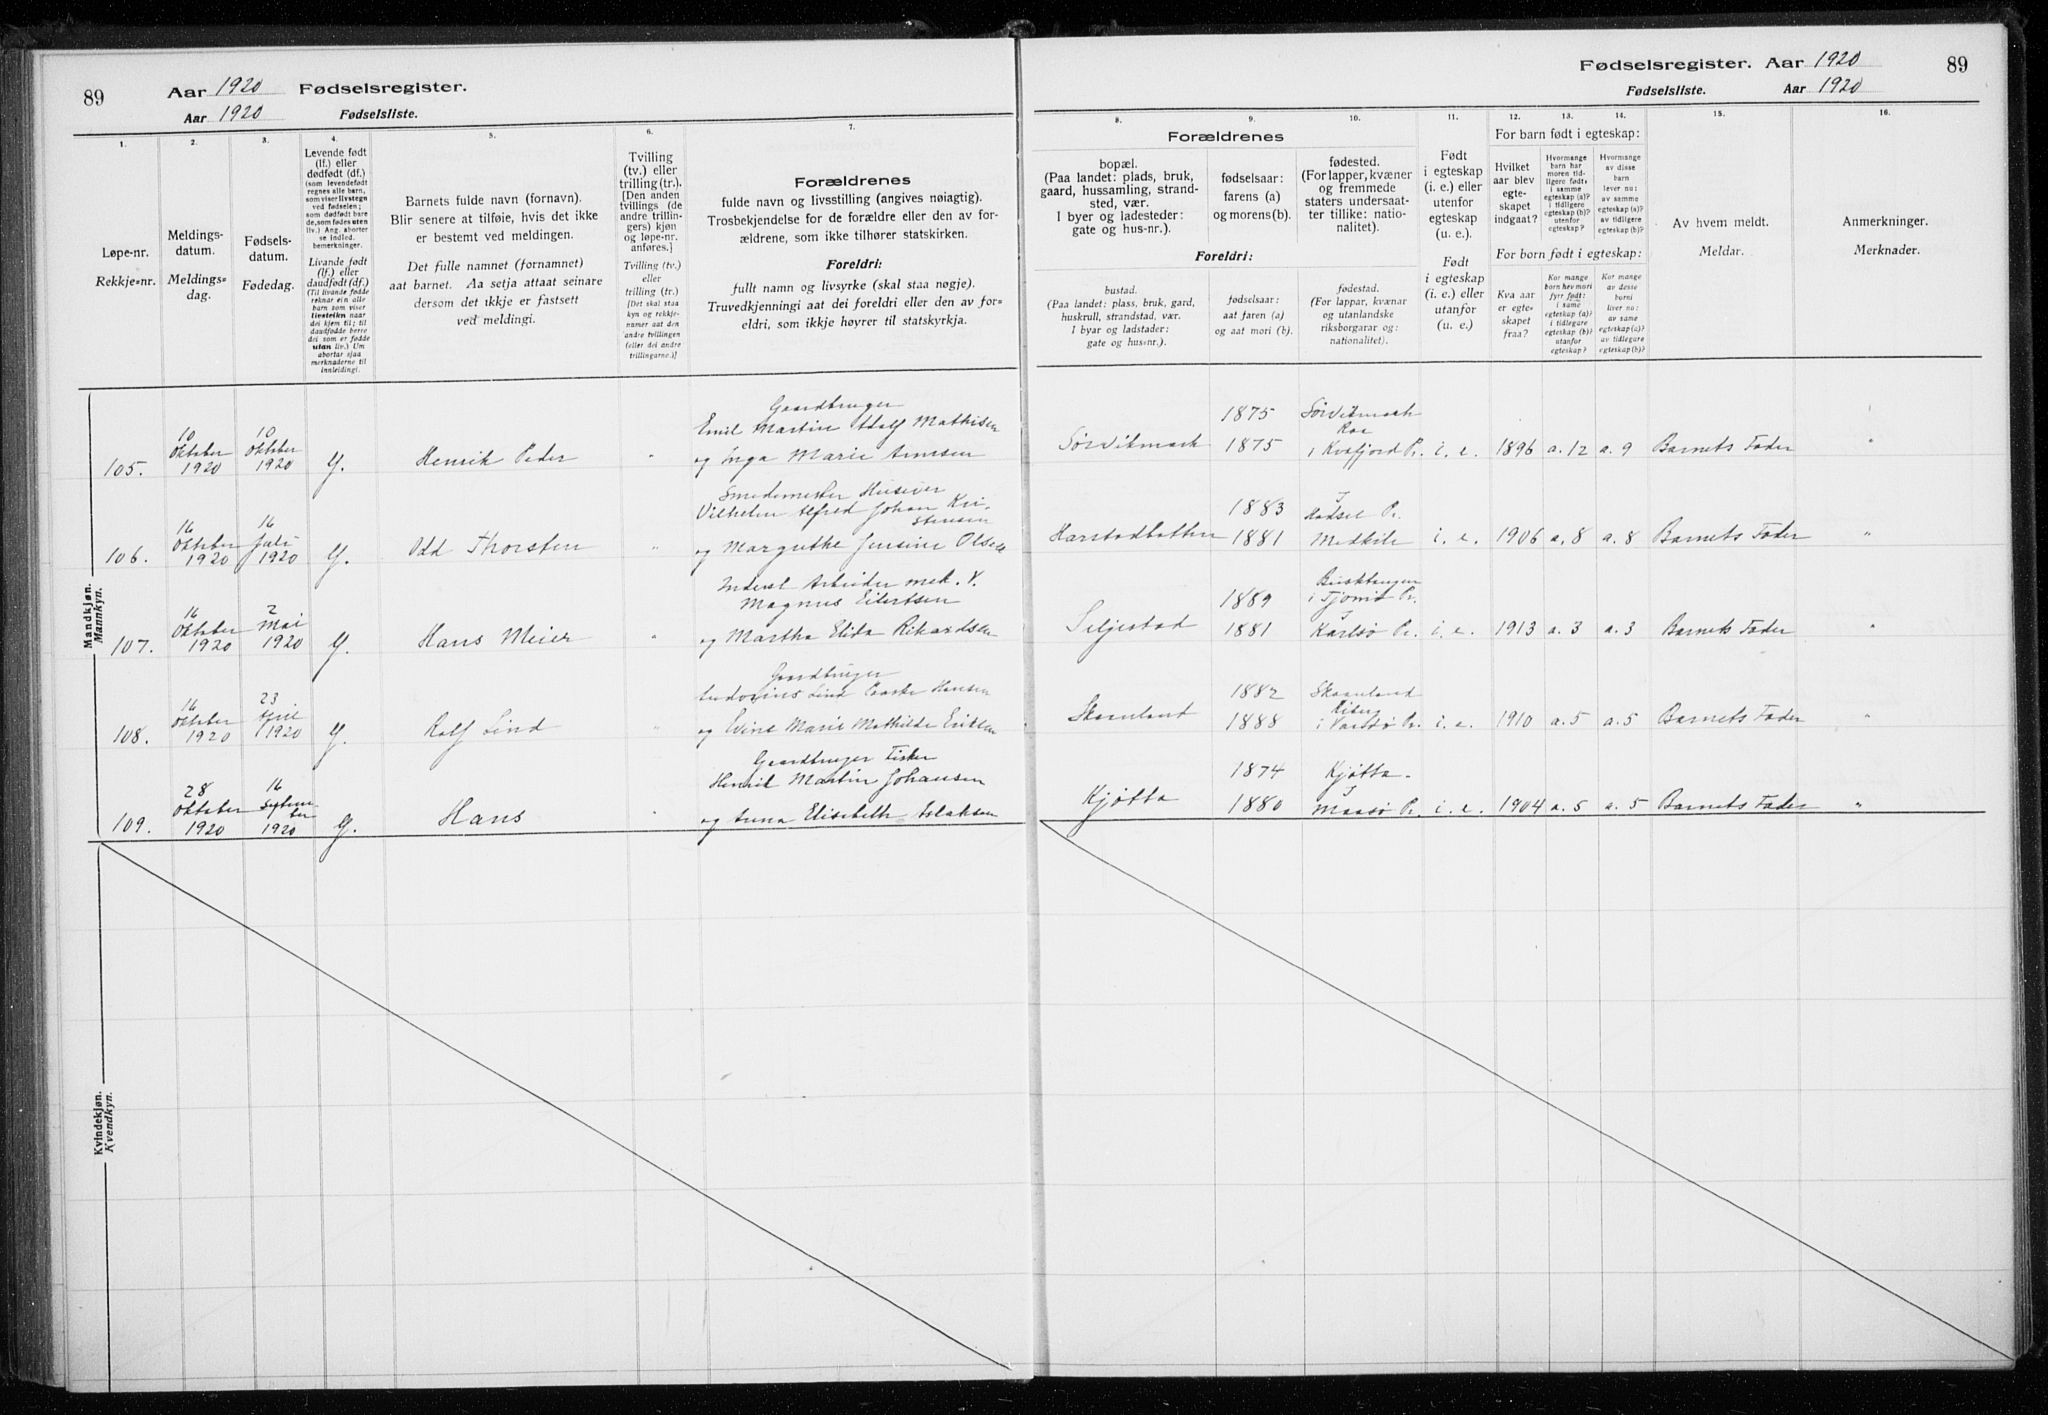 89
Aar 1920 Fødselsregister.
Aar 1920 Fødselsliste.
1.
Løpe-nr.
Rekkje=nr.
2.
Meldings-
datum.
Meldings=
dag.
3.
Fødsels-
datum.
Fødedag.
4.
Levende født
(lf.) eller
dødfødt (df.)
(som levendefødt
regnes alle barn,
som viser livstegn
ved fødselen;
som dødfødt bare
de, som fødes uten
liv.) Ang. aborter
se indled.
bemerkninger.
Livande født
(lf.) eller
daudfødt (df.)
(Til livande fødde
reknar ein alle
barn som viser
livsteikn naar
dei kjem til; til
daudfødde berre
dei som er fødde
utan liv.) Um
abortar sjaa
merknaderne til
innleidingi.
5.
Barnets fulde navn (fornavn).
Blir senere at tilføie, hvis det ikke
er bestemt ved meldingen.
Det fulle namnet (fornamnet)
aat barnet. Aa setja attaat seinare
dersom det ikkje er fastsett
ved meldingi.
6.
Tvilling
(tv.) eller
trilling (tr.).
[Den anden
tvillings (de
andre trillin-
gers) kjøn
og løpe-nr.
anføres.]
Tvilling (tv.)
eller
trilling (tr.)
[Det skal staa
kyn og rekkje-
numer aat den
andre tvillingen
(eller dei andre
trillingarne.)]
7.
Forældrenes
fulde navn og livsstilling (angives nøiagtig).
Trosbekjendelse for de forældre eller den av for-
ældrene, som ikke tilhører statskirken.
Foreldri:
fullt namn og livsyrke (skal staa nøgje).
Truvedkjenningi aat dei foreldri eller den av for=
eldri, som ikkje høyrer til statskyrkja.
Mandkjøn.
Mannkyn.
105.
10
Oktober
1920
10
Oktober
1920
Henrik Peder
"
Gaardbruger
Emil Martin Adolf Mathisen
og Inga Marie Arntsen
106.
16
Oktober
1920
16
Juli
1920
Odd Thorsten
"
Smedemester Huseier
Vilhelm Alfred Johan Kri-
stensen
og Margrethe Jensine Olsen
107.
16
Oktober
1920
2
Mai
1920
Hans Meier
"
Arbeider
Magnus Eilertsen
og Martha Elida Rikardsen
108.
16
Oktober
1920
23
April
1920
Rolf Lind
"
Gaardbruger
Lind Hansen
og Marie Mathilde Eriksen
109.
28
Oktober
1920
16
Septem
ber
1920
Hans
"
Gaardbruger Fisker
Henrik Martin Johansen
og Anna Elisabeth Aslaksen
Kvindekjøn.
Kvendkyn.
Fødselsregister. Aar 1920
89
Fødselsliste. Aar 1920
8.
Forældrenes
bopæl.
(Paa landet: plads, bruk,
gaard, hussamling, strand-
sted, vær.
I byer og ladesteder:
gate og hus-nr.).
Foreldri:
bustad.
(Paa landet: plass, bruk, gard,
huskrull, strandstad, vær.
I byar og ladstader:
gate og hus=nr.).
9.
fødselsaar:
farens (a)
og morens (b).
fødselsaar:
aat faren (a)
og aat mori (b).
10.
fødested.
(For lapper, kvæner
og fremmede
staters undersaat-
ter tillike: natio-
nalitet).
fødestad.
(For lappar, kvænar
og utanlandske
riksborgarar og:
nationalitet).
11.
Født
i egteskap
(i. e.) eller
utenfor
egteskap
(u. e.).
Født
i egteskap
(i. e.) eller
utanfor
(u. e.).
12.
13.
14.
For barn født i egteskap:
Hvilket
aar blev
egte-
skapet
indgaat?
Hvormange
barn har
moren tid-
ligere født:
i samme
egteskap (a)?
i tidligere
egteskap (b)?
utenfor
egteskap?
Hvormange
av disse
barn
lever nu:
av samme
egteskap (a)?
av tidligere
egteskap (b)?
For born født i egteskap:
Kva aar
er egte=
skapet
fraa?
Kor mange
born hev mori
fyrr født:
i same
egteskap (a)?
i tidlegare
egteskap (b)?
utanfor
egteskap?
Kor mange
av desse
borni
liver nu:
av same
egteskap (a)?
av tidlegare
egteskap (b)?
15.
Av hvem meldt.
Meldar.
16.
Anmerkninger.
Merknader.
Sørvikmark
1875
1875
Sørvikmark
i Kvæfjord Pr.
i. e.
1896
a. 12
a. 9
Barnets Fader
"
Harstadbotten
1883
1881
Hadsel Pr.
Medkile
i. e.
1906
a. 8
a. 8
Barnets Fader
"
Seljestad
1889
1881
Karlsø Pr.
i. e.
1913
a. 3
a. 3
Barnets Fader
"
Skaanland
1882
1888
Skaanland
i Vardø Pr.
i. e.
1910
a. 5
a. 5
Barnets Fader
"
Kjøtta
1874
1880
Kjøtta.
Maasø Pr.
i. e.
1904
a. 5
a. 5
Barnets Fader
"